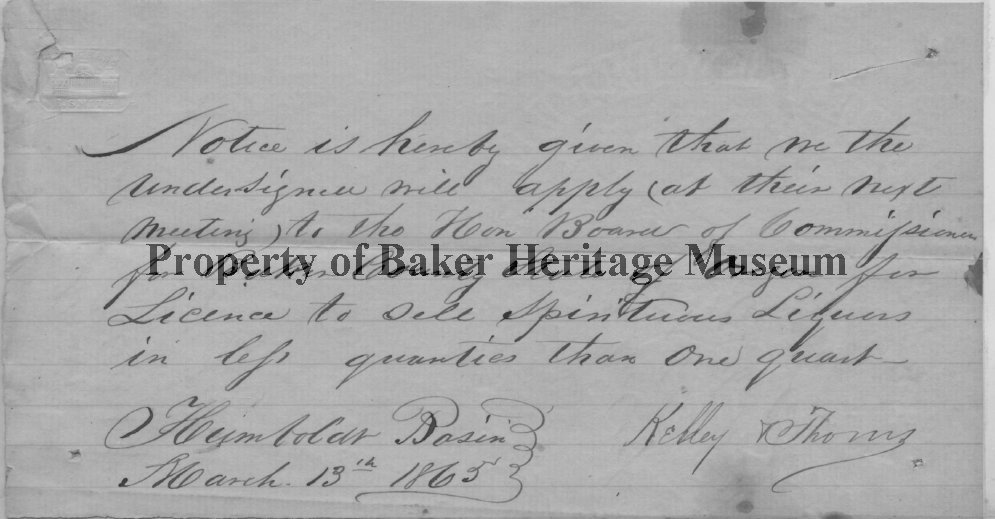 Notice is hereby given that we the
undersigned will apply (at their next
meeting) to the Hon Board of Commissioners
for Baker County State of Oregon for
Property of Baker Heritage Museum
Licence to sell Spirituous Liquors
in less quanties than One quart
Humboldt Basin
March 13th 1865
Kelley & Thom